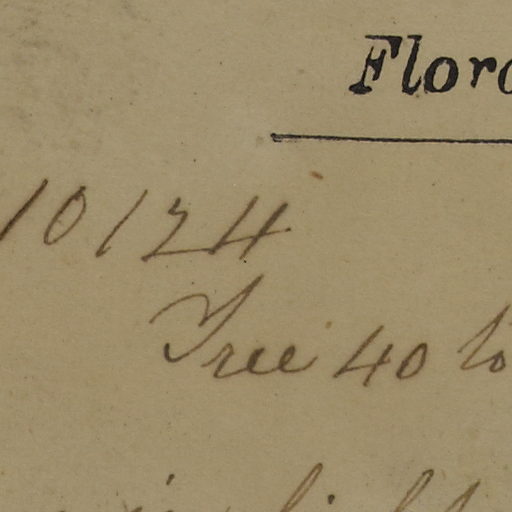 Flora
10124
Tree 40 to